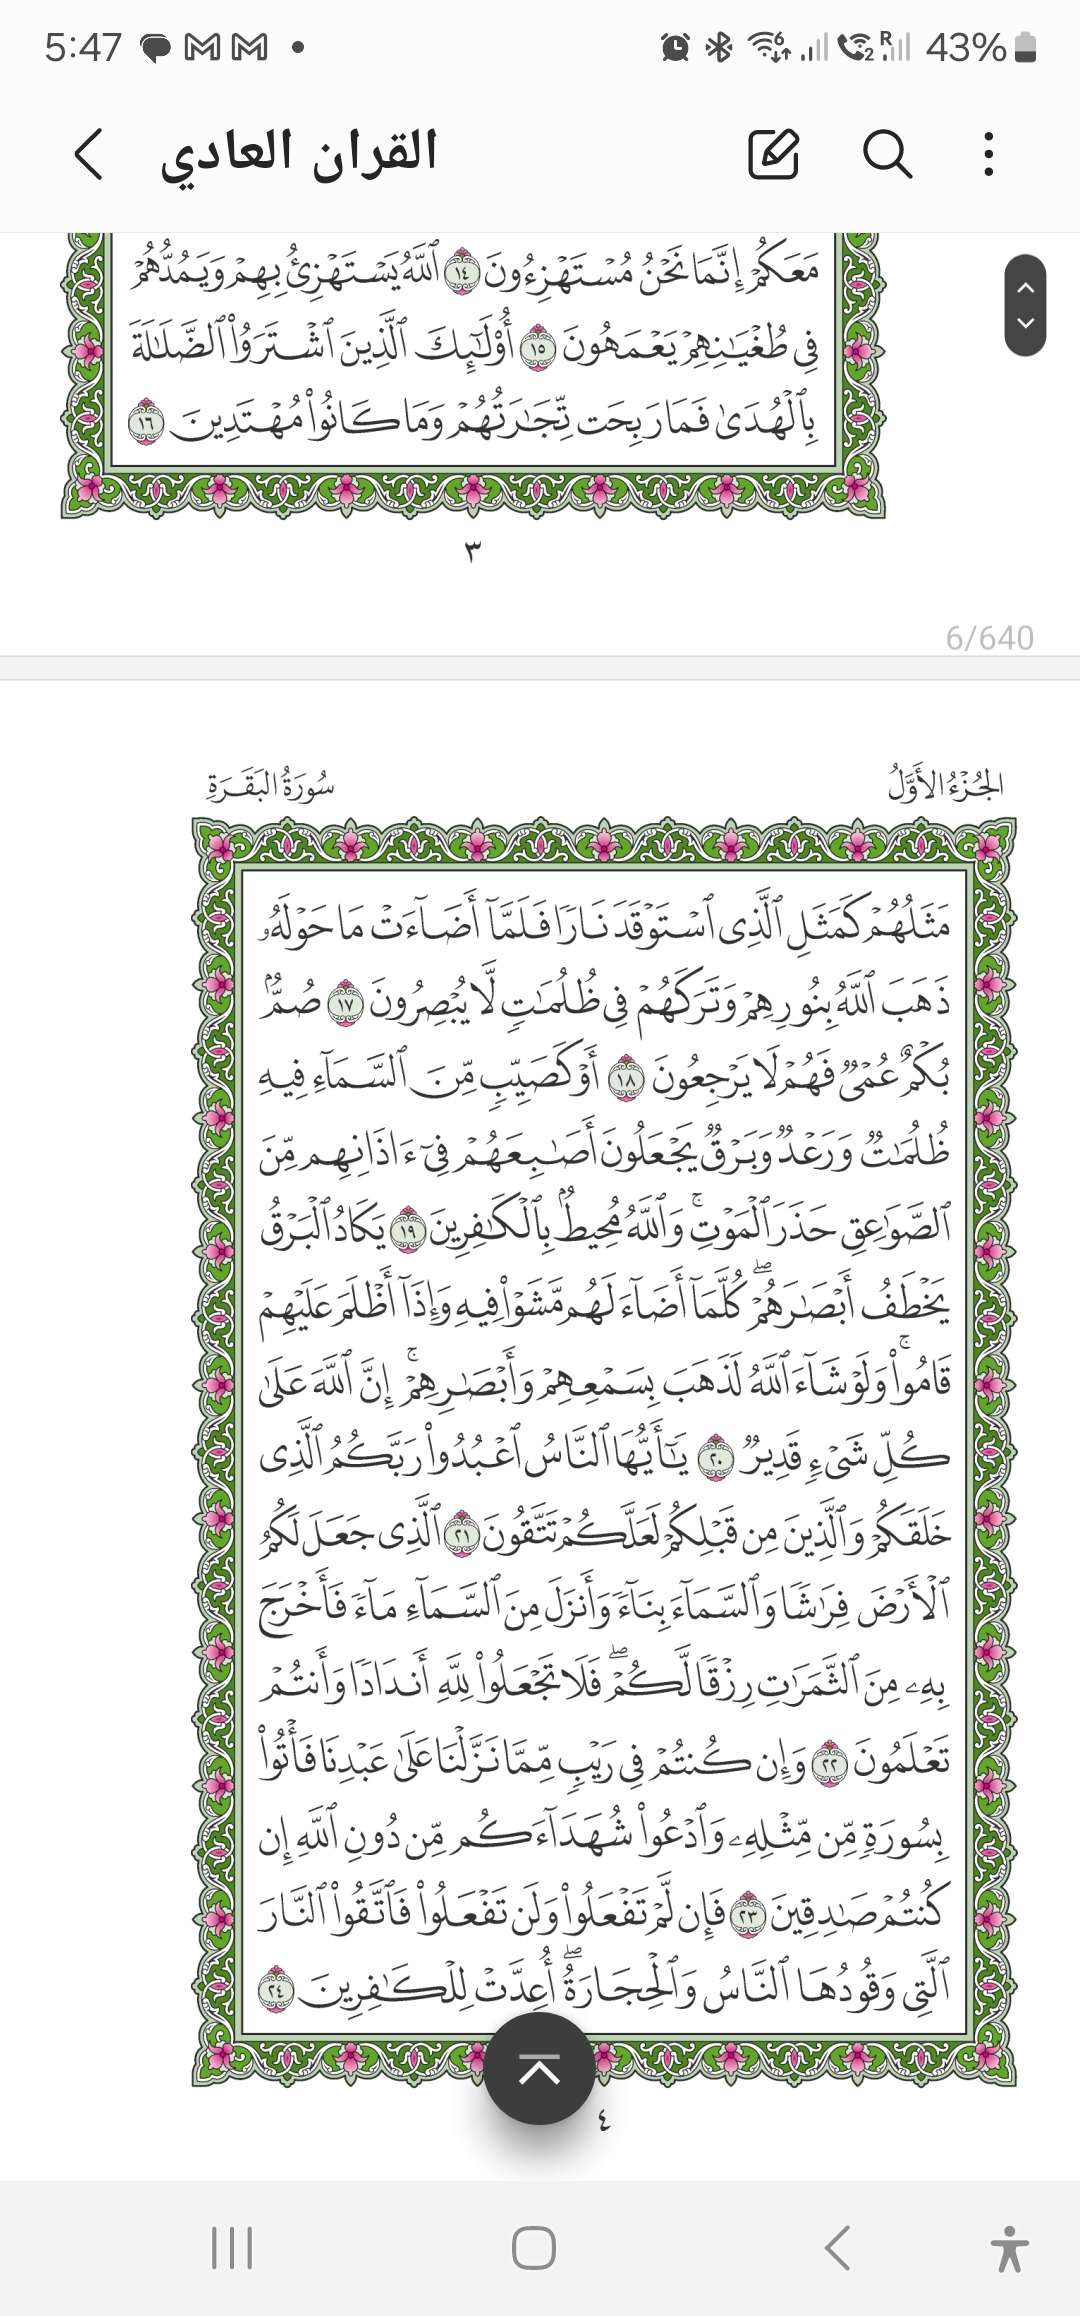 5:47
43%
القران العادي
مَعَكُمْ إِنَّمَا نَحْنُ مُسْتَهْزِءُونَ ١٤ ٱللَّهُ يَسْتَهْزِئُ بِهِمْ وَيَمُدُّهُمْ
فِى طُغْيَـٰنِهِمْ يَعْمَهُونَ ١٥ أُو۟لَـٰٓئِكَ ٱلَّذِينَ ٱشْتَرَوُا۟ ٱلضَّلَـٰلَةَ
بِٱلْهُدَىٰ فَمَا رَبِحَت تِّجَـٰرَتُهُمْ وَمَا كَانُوا۟ مُهْتَدِينَ ١٦
٣
6/640
الجُزْءُ الأَوَّلُ
سُورَةُ البَقَرَةِ
مَثَلُهُمْ كَمَثَلِ ٱلَّذِى ٱسْتَوْقَدَ نَارًا فَلَمَّآ أَضَآءَتْ مَا حَوْلَهُۥ
ذَهَبَ ٱللَّهُ بِنُورِهِمْ وَتَرَكَهُمْ فِى ظُلُمَـٰتٍ لَّا يُبْصِرُونَ ١٧ صُمٌّۢ
بُكْمٌ عُمْىٌ فَهُمْ لَا يَرْجِعُونَ ١٨ أَوْ كَصَيِّبٍ مِّنَ ٱلسَّمَآءِ فِيهِ
ظُلُمَـٰتٌ وَرَعْدٌ وَبَرْقٌ يَجْعَلُونَ أَصَـٰبِعَهُمْ فِىٓ ءَاذَانِهِم مِّنَ
ٱلصَّوَٰعِقِ حَذَرَ ٱلْمَوْتِ ۚ وَٱللَّهُ مُحِيطٌۢ بِٱلْكَـٰفِرِينَ ١٩ يَكَادُ ٱلْبَرْقُ
يَخْطَفُ أَبْصَـٰرَهُمْ ۖ كُلَّمَآ أَضَآءَ لَهُم مَّشَوْا۟ فِيهِ وَإِذَآ أَظْلَمَ عَلَيْهِمْ
قَامُوا۟ ۚ وَلَوْ شَآءَ ٱللَّهُ لَذَهَبَ بِسَمْعِهِمْ وَأَبْصَـٰرِهِمْ ۚ إِنَّ ٱللَّهَ عَلَىٰ
كُلِّ شَىْءٍ قَدِيرٌ ٢٠ يَـٰٓأَيُّهَا ٱلنَّاسُ ٱعْبُدُوا۟ رَبَّكُمُ ٱلَّذِى
خَلَقَكُمْ وَٱلَّذِينَ مِن قَبْلِكُمْ لَعَلَّكُمْ تَتَّقُونَ ٢١ ٱلَّذِى جَعَلَ لَكُمُ
ٱلْأَرْضَ فِرَٰشًا وَٱلسَّمَآءَ بِنَآءً وَأَنزَلَ مِنَ ٱلسَّمَآءِ مَآءً فَأَخْرَجَ
بِهِۦ مِنَ ٱلثَّمَرَٰتِ رِزْقًا لَّكُمْ ۖ فَلَا تَجْعَلُوا۟ لِلَّهِ أَندَادًا وَأَنتُمْ
تَعْلَمُونَ ٢٢ وَإِن كُنتُمْ فِى رَيْبٍ مِّمَّا نَزَّلْنَا عَلَىٰ عَبْدِنَا فَأْتُوا۟
بِسُورَةٍ مِّن مِّثْلِهِۦ وَٱدْعُوا۟ شُهَدَآءَكُم مِّن دُونِ ٱللَّهِ إِن
كُنتُمْ صَـٰدِقِينَ ٢٣ فَإِن لَّمْ تَفْعَلُوا۟ وَلَن تَفْعَلُوا۟ فَٱتَّقُوا۟ ٱلنَّارَ
ٱلَّتِى وَقُودُهَا ٱلنَّاسُ وَٱلْحِجَارَةُ ۖ أُعِدَّتْ لِلْكَـٰفِرِينَ ٢٤
٤